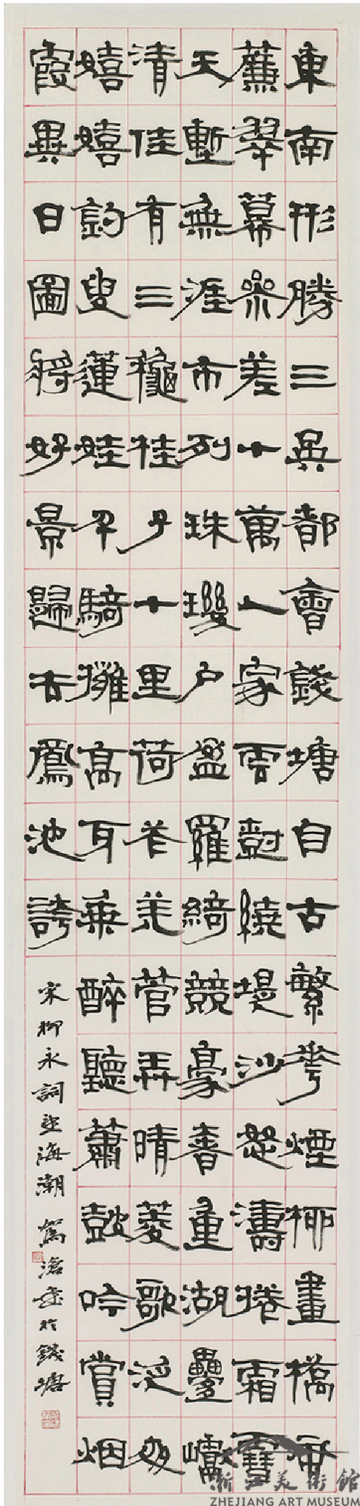 東南形勝三吳都會錢塘自古繁華煙柳畫橋風
簾翠幕參差十萬人家雲樹繞堤沙怒濤捲霜雪
天塹無涯市列珠璣戶盈羅綺競豪奢重湖疊巘
清佳有三秋桂子十里荷花羌管弄晴菱歌泛夜
嬉嬉釣叟蓮娃千騎擁高牙乘醉聽簫鼓吟賞烟
霞異日圖將好景歸去鳳池誇
宋柳永詞望海潮 滄書於錢塘
浙江美術館
ZHEJIANG ART MUSEUM